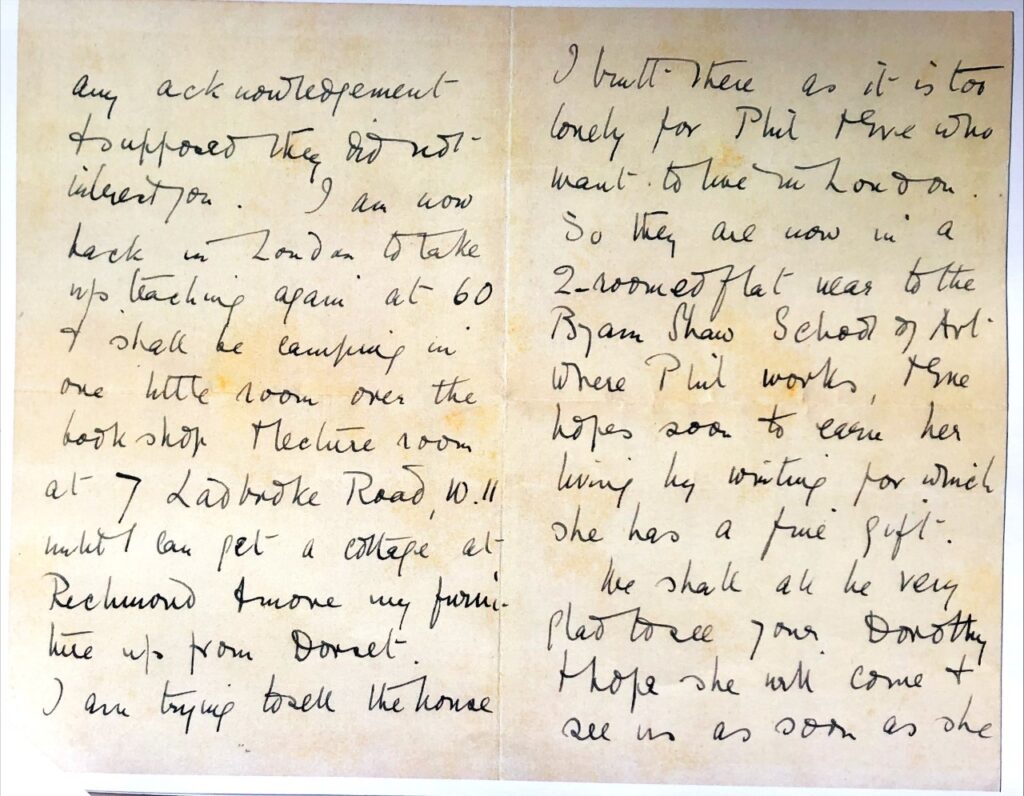 any acknowledgement
& supposed they did not
interest you. I am now
back in London to take
up teaching again at 60
& shall be camping in
one little room over the
bookshop & lecture room
at 7 Ladbroke Road, W.11
until I can get a cottage at
Richmond & move my furni-
ture up from Dorset.
I am trying to sell the house
I built there as it is too
lonely for Phil & Eve who
want to live in London.
So they are now in a
2-roomed flat near to the
Byam Shaw School of Art
where Phil works, & Eve
hopes soon to earn her
living by writing for which
she has a fine gift.
We shall all be very
glad to see your Dorothy
& hope she will come &
see us as soon as she